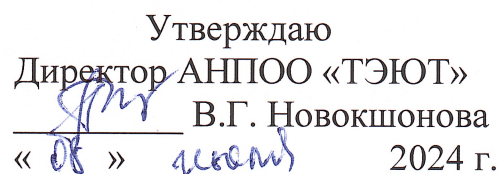 Утверждаю
Директор АНПОО «ТЭЮТ»
В.Г. Новокшонова
« 08 » 2024 г.